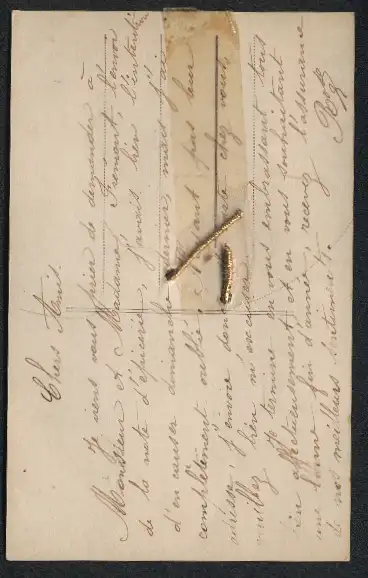 Chers Amis.
Je viens vous prier de demander à
Monsieur et Madame Fremont, l'envoi
de la note d'épicerie, j'avais bien l'intention
d'en causer dimanche dernier, mais j'ai
complètement oublié, n'ayant pas leur
adresse, j'envoie donc chez vous,
veuillez bien m'excuser.
Je termine en vous embrassant tous
bien affectueusement, et en vous souhaitant
une bonne fin d'année, recevez l'assurance
de nos meilleurs sentiments.